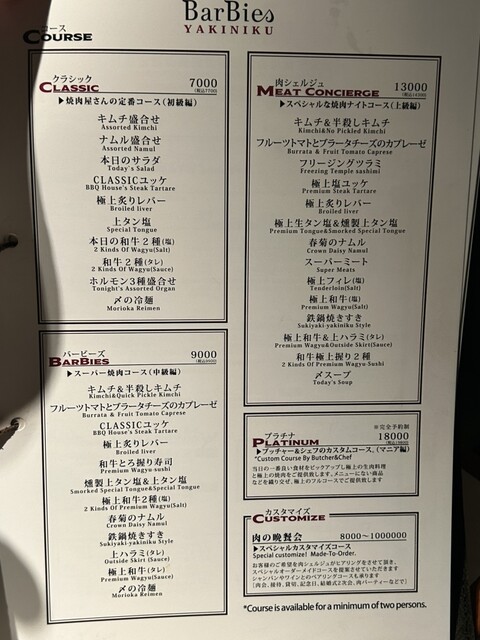 BarBies
YAKINIKU
コース
COURSE
クラシック
CLASSIC
7000
(税込7700)
▶焼肉屋さんの定番コース(初級編)
キムチ盛合せ
Assorted Kimchi
ナムル盛合せ
Assorted Namul
本日のサラダ
Today's Salad
CLASSICユッケ
BBQ House's Steak Tartare
極上炙りレバー
Broiled liver
上タン塩
Special Tongue
本日の和牛2種(塩)
2 Kinds Of Wagyu(Salt)
和牛2種(タレ)
2 Kinds Of Wagyu(Sauce)
ホルモン3種盛合せ
Tonight's Assorted Organ
〆の冷麺
Morioka Reimen
バービーズ
BARBIES
9000
(税込9900)
▶スーパー焼肉コース(中級編)
キムチ&半殺しキムチ
Kimchi&Quick Pickle Kimchi
フルーツトマトとブラータチーズのカプレーゼ
Burrata & Fruit Tomato Caprese
CLASSICユッケ
BBQ House's Steak Tartare
極上炙りレバー
Broiled liver
和牛とろ握り寿司
Premium Wagyu-sushi
燻製上タン塩&上タン塩
Smorked Special Tongue&Special Tongue
極上和牛2種(塩)
2 Kinds Of Premium Wagyu(Salt)
春菊のナムル
Crown Daisy Namul
鉄鍋焼きすき
Sukiyaki-yakiniku Style
上ハラミ(タレ)
Outside Skirt (Sauce)
極上和牛(タレ)
Premium Wagyu(Sauce)
〆の冷麺
Morioka Reimen
肉シェルジュ
MEAT CONCIERGE
13000
(税込14300)
▶スペシャルな焼肉ナイトコース(上級編)
キムチ&半殺しキムチ
Kimchi&No Pickled Kimchi
フルーツトマトとブラータチーズのカプレーゼ
Burrata & Fruit Tomato Caprese
フリージングツラミ
Freezing Temple sashimi
極上塩ユッケ
Premium Steak Tartare
極上炙りレバー
Broiled liver
極上生タン塩&燻製上タン塩
Premium Tongue&Smorked Special Tongue
春菊のナムル
Crown Daisy Namul
スーパーミート
Super Meats
極上フィレ(塩)
Tenderloin(Salt)
極上和牛(塩)
Premium Wagyu(Salt)
鉄鍋焼きすき
Sukiyaki-yakiniku Style
極上和牛&上ハラミ(タレ)
Premium Wagyu&Outside Skirt(Sauce)
和牛極上握り2種
2 Kinds Of Premium Wagyu-Sushi
〆スープ
Today's Soup
※完全予約制
プラチナ
PLATINUM
18000
(税込19800)
▶ブッチャー&シェフのカスタムコース。(マニア編)
*Custom Course By Butcher&Chef
当日の一番良い食材をピックアップし極上の生肉料理
と極上の焼肉をご提供致します。メニューにない商品
などを織り交ぜ、極上のフルコースでご提供致します
カスタマイズ
CUSTOMIZE
肉の晩餐会
8000〜1000000
▶スペシャルカスタマイズコース
Special customize! Made-To-Order.
お客様のご希望を肉シェルジュがヒアリングをさせて頂き、
スペシャルオーダーメイドコースを提案させていただきます
シャンパンやワインとのペアリングコースも承ります
「肉会、接待、貸切、記念日、結婚式2次会、肉パーティーなどで」
*Course is available for a minimum of two persons.